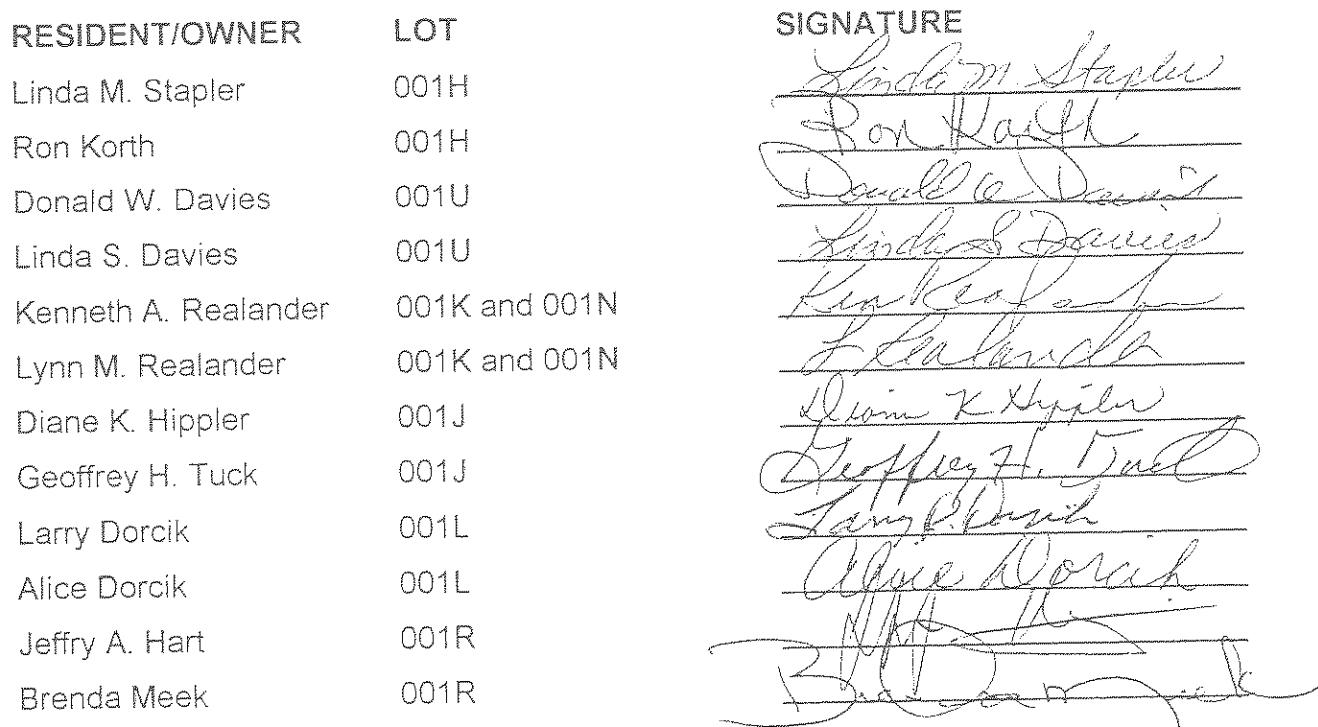 RESIDENT/OWNER LOT SIGNATURE
Linda M. Stapler 001H Linda M. Stapler
Ron Korth 001H Ron Korth
Donald W. Davies 001U Donald W Davies
Linda S. Davies 001U Linda S Davies
Kenneth A. Realander 001K and 001N Ken Realander
Lynn M. Realander 001K and 001N L Realander
Diane K. Hippler 001J Diane K Hippler
Geoffrey H. Tuck 001J Geoffrey H. Tuck
Larry Dorcik 001L Larry P. Dorcik
Alice Dorcik 001L Alice Dorcik
Jeffry A. Hart 001R
Brenda Meek 001R Brenda Meek